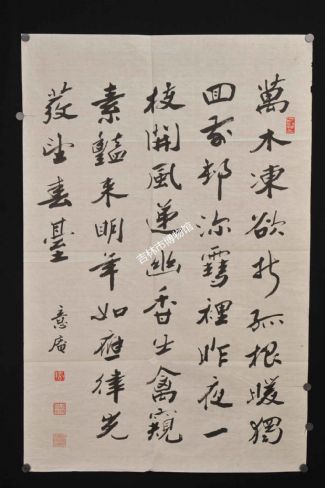 萬木凍欲折孤根暖獨
回前邨深雪裡昨夜一
枝開風遞幽香出禽窺
素豔來明年如應律先
發望春臺
意庵
吉林市博物馆